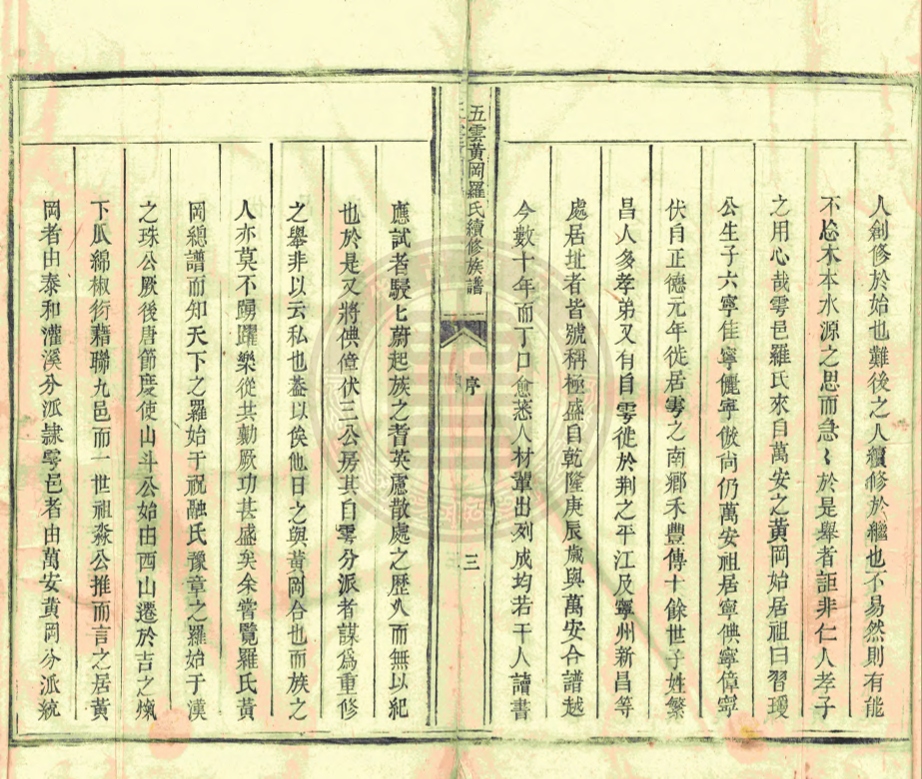 人創修於始也難後之人續修於繼也不易然則有能
不忘木本水源之思而急〻於是舉者詎非仁人孝子
之用心哉雩邑羅氏來自萬安之黃岡始居祖曰習瓊
公生子六寧佳寧儷寧倣尚仍萬安祖居寧倎寧偉寧
伏自正德元年徙居雩之南鄉禾豐傳十餘世子姓繁
昌人多孝弟又有自雩徙於荆之平江及寧州新昌等
處居址者皆號稱極盛自乾隆庚辰歲與萬安合譜越
今數十年而丁口愈蒸人材輩出列成均若干人讀書
五雲黃岡羅氏續修族譜
序
三
應試者駸匕蔚起族之耆英慮散處之歷久而無以紀
也於是又將倎偉伏三公房其自雩分派者謀爲重修
之舉非以云私也葢以俟他日之與黃岡合也而族之
人亦莫不踴躍樂從共勷厥功甚盛矣余嘗覽羅氏黃
岡總譜而知天下之羅始于祝融氏豫章之羅始于漢
之珠公厥後唐節度使山斗公始由西山遷於吉之
下瓜綿椒衍藉聯九邑而一世祖淼公推而言之居黃
岡者由泰和灌溪分派隷雩邑者由萬安黃岡分派統